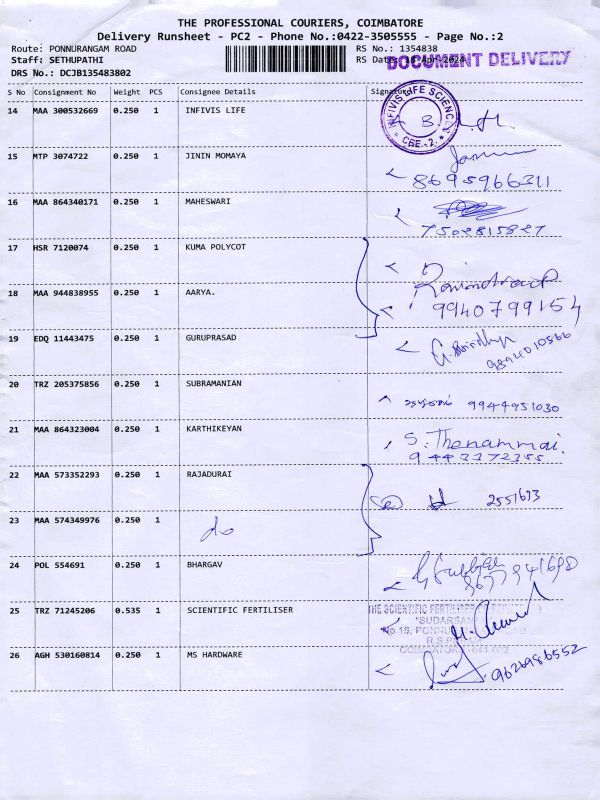 THE PROFESSIONAL COURIERS, COIMBATORE
Delivery Runsheet - PC2 - Phone No.:0422-3505555 - Page No.:2
Route: PONNURANGAM ROAD
RS No.: 1354838
Staff: SETHUPATHI
RS Date: 18-Apr-2024
DOCUMENT DELIVERY
DRS No.: DCJB135483802
S No Consignment No Weight PCS Consignee Details Signature
14 MAA 300532669 0.250 1 INFIVIS LIFE
INFIVIS LIFE SCIENCES
CBE - 2.
15 MTP 3074722 0.250 1 JININ MOMAYA
8695966311
16 MAA 864340171 0.250 1 MAHESWARI
7502815827
17 HSR 7120074 0.250 1 KUMA POLYCOT
18 MAA 944838955 0.250 1 AARYA.
9940799154
19 EDQ 11443475 0.250 1 GURUPRASAD
9894010566
20 TRZ 205375856 0.250 1 SUBRAMANIAN
9944951030
21 MAA 864323004 0.250 1 KARTHIKEYAN
S. Thenammai.
9443372355
22 MAA 573352293 0.250 1 RAJADURAI
2551673
23 MAA 574349976 0.250 1 do
24 POL 554691 0.250 1 BHARGAV
25 TRZ 71245206 0.535 1 SCIENTIFIC FERTILISER
THE SCIENTIFIC FERTILISER
"SUDARSAN
No.15, PONNU
R.S.
COIMBATORE-641 002
26 AGH 530160814 0.250 1 MS HARDWARE
9626986552